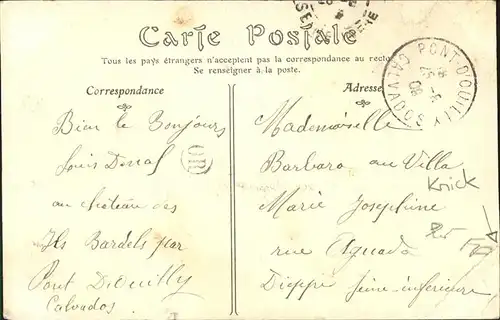 Carte Postale
Tous les pays étrangers n'acceptent pas la correspondance au recto
Se renseigner à la poste.
Correspondance
Bien le Bonjours
Louis
au château des
Ils Bardels par
Pont D'Ouilly
Calvados
OR
Adresse
PONT-D'OUILLY CALVADOS
Mademoiselle
Barbara au Villa
Marie Josephine
rue Aguado
Dieppe Seine-inférieure
Knick